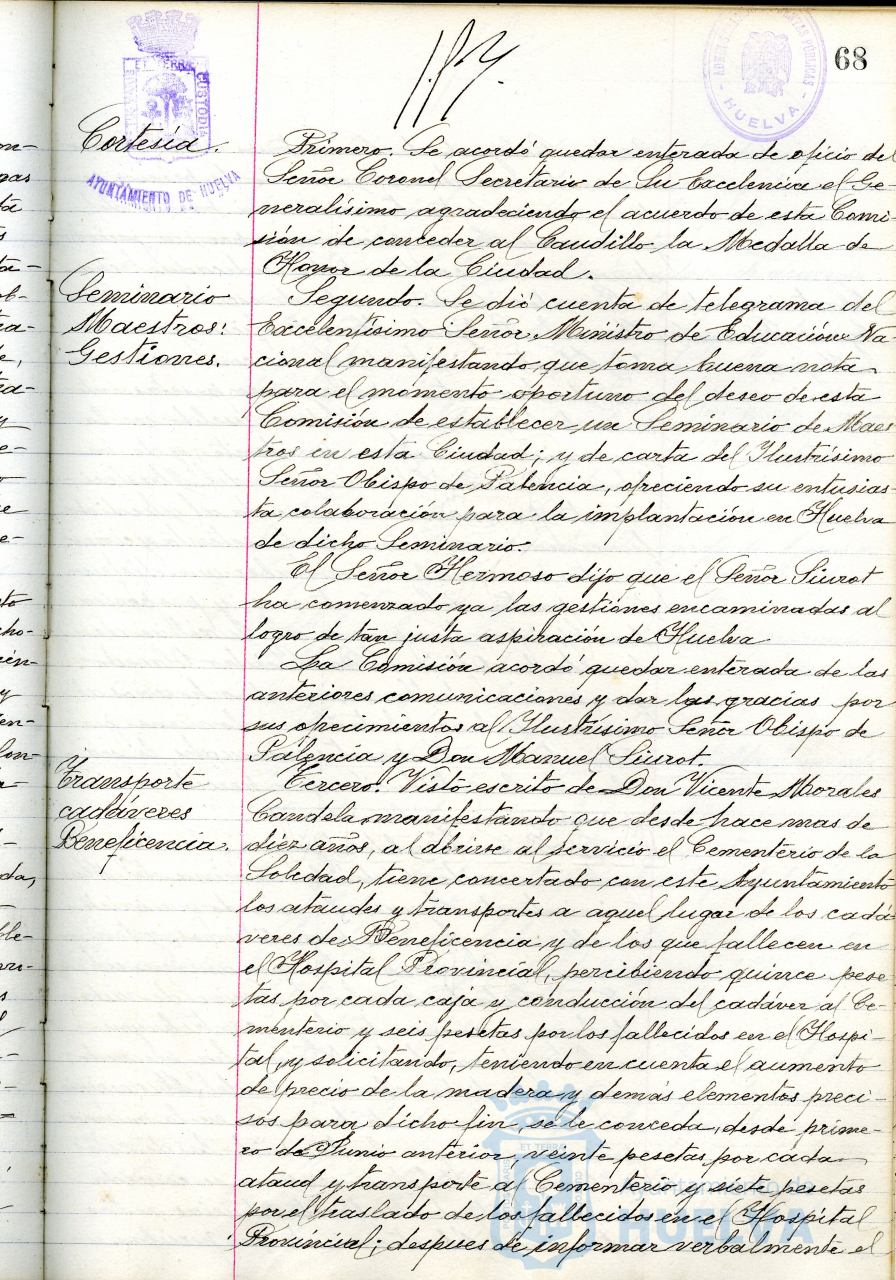 68
ADMINISTRACION DE RENTAS PUBLICAS
HUELVA
PORTUS MARIS ET TERRÆ CUSTODIA
AYUNTAMIENTO DE HUELVA
Cortesía.
Primero. Se acordó quedar enterada de oficio del
Señor Coronel Secretario de Su Excelencia el Ge-
neralísimo agradeciendo el acuerdo de esta Comi-
sión de conceder al Caudillo la Medalla de
Honor de la Ciudad.
Seminario
Maestros:
Gestiones.
Segundo. Se dió cuenta de telegrama del
Excelentísimo Señor Ministro de Educación Na-
cional manifestando que toma buena nota
para el momento oportuno del deseo de esta
Comisión de establecer un Seminario de Maes-
tros en esta Ciudad; y de carta del Ilustrísimo
Señor Obispo de Palencia, ofreciendo su entusias-
ta colaboración para la implantación en Huelva
de dicho Seminario.
El Señor Hermoso dijo que el Señor Siurot
ha comenzado ya las gestiones encaminadas al
logro de tan justa aspiración de Huelva
La Comisión acordó quedar enterada de las
anteriores comunicaciones y dar las gracias por
sus ofrecimientos al Ilustrísimo Señor Obispo de
Palencia y Don Manuel Siurot.
Transporte
cadáveres
Beneficencia.
Tercero. Visto escrito de Don Vicente Morales
Candela manifestando que desde hace mas de
diez años, al abrirse al servicio el Cementerio de la
Soledad, tiene concertado con este Ayuntamiento
los ataudes y transportes a aquel lugar de los cadá-
veres de Beneficencia y de los que fallecen en
el Hospital Provincial, percibiendo quince pese-
tas por cada caja y conducción del cadáver al Ce-
menterio y seis pesetas por los fallecidos en el Hospi-
tal, y solicitando, teniendo en cuenta el aumento
de precio de la madera y demás elementos preci-
sos para dicho fin, se le conceda, desde prime-
ro de Junio anterior, veinte pesetas por cada
ataud y transporte al Cementerio y siete pesetas
por el traslado de los fallecidos en el Hospital
Provincial; despues de informar verbalmente el
Ayuntamiento de
HUELVA